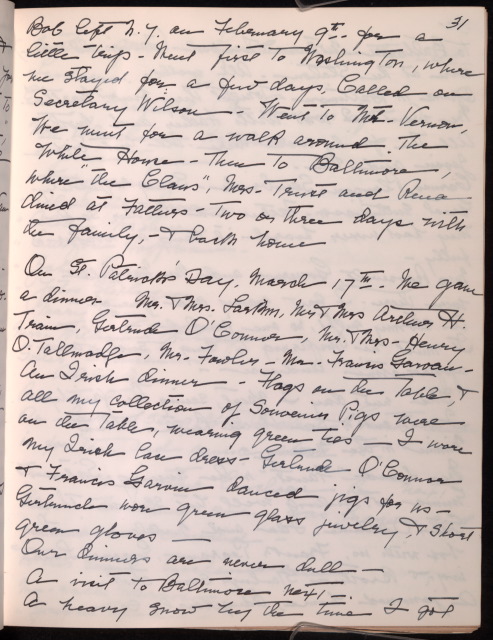 31
Bob left N.Y. on February 9th for a
little trip - Went first to Washington, where
we stayed for a few days. Called on
Secretary Wilson - Went to Mt. Vernon,
We went for a walk around the
White House - then to Baltimore,
where "the Clans", Mrs. and
dined at Fathers - Two or three days with
the family, - & back home
On St. Patrick's Day, March 17th - We gave
a dinner Mr. & Mrs. Larkin, Mr & Mrs Arthur H.
Train, Gertrude O'Connor, Mr. & Mrs - Henry
D. Tallmadge, Mr. Fowler - Mr. Francis Garvan -
An Irish dinner - Flags on the table, &
all my collection of Souvenir Pigs were
on the table, wearing green ties - I wore
my Irish lace dress - Gertrude O'Connor
& Francis Garvin danced jigs for us -
Gertrude wore green glass jewelry, & short
green gloves -
Our dinners are never dull -
A visit to Baltimore next! -
A heavy snow by the time I got